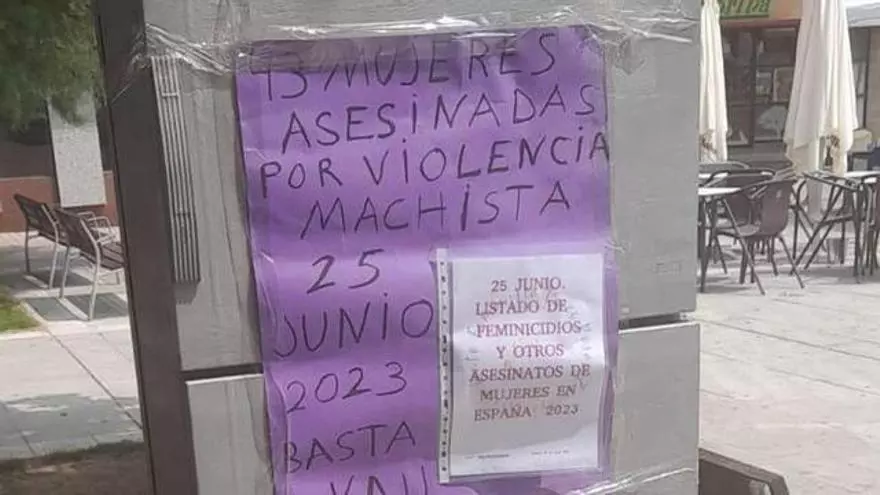 43 MUJERES
ASESINADAS
POR VIOLENCIA
MACHISTA
25
JUNIO
2023
BASTA
YA!!
25 JUNIO.
LISTADO DE
FEMINICIDIOS
Y OTROS
ASESINATOS DE
MUJERES EN
ESPAÑA 2023